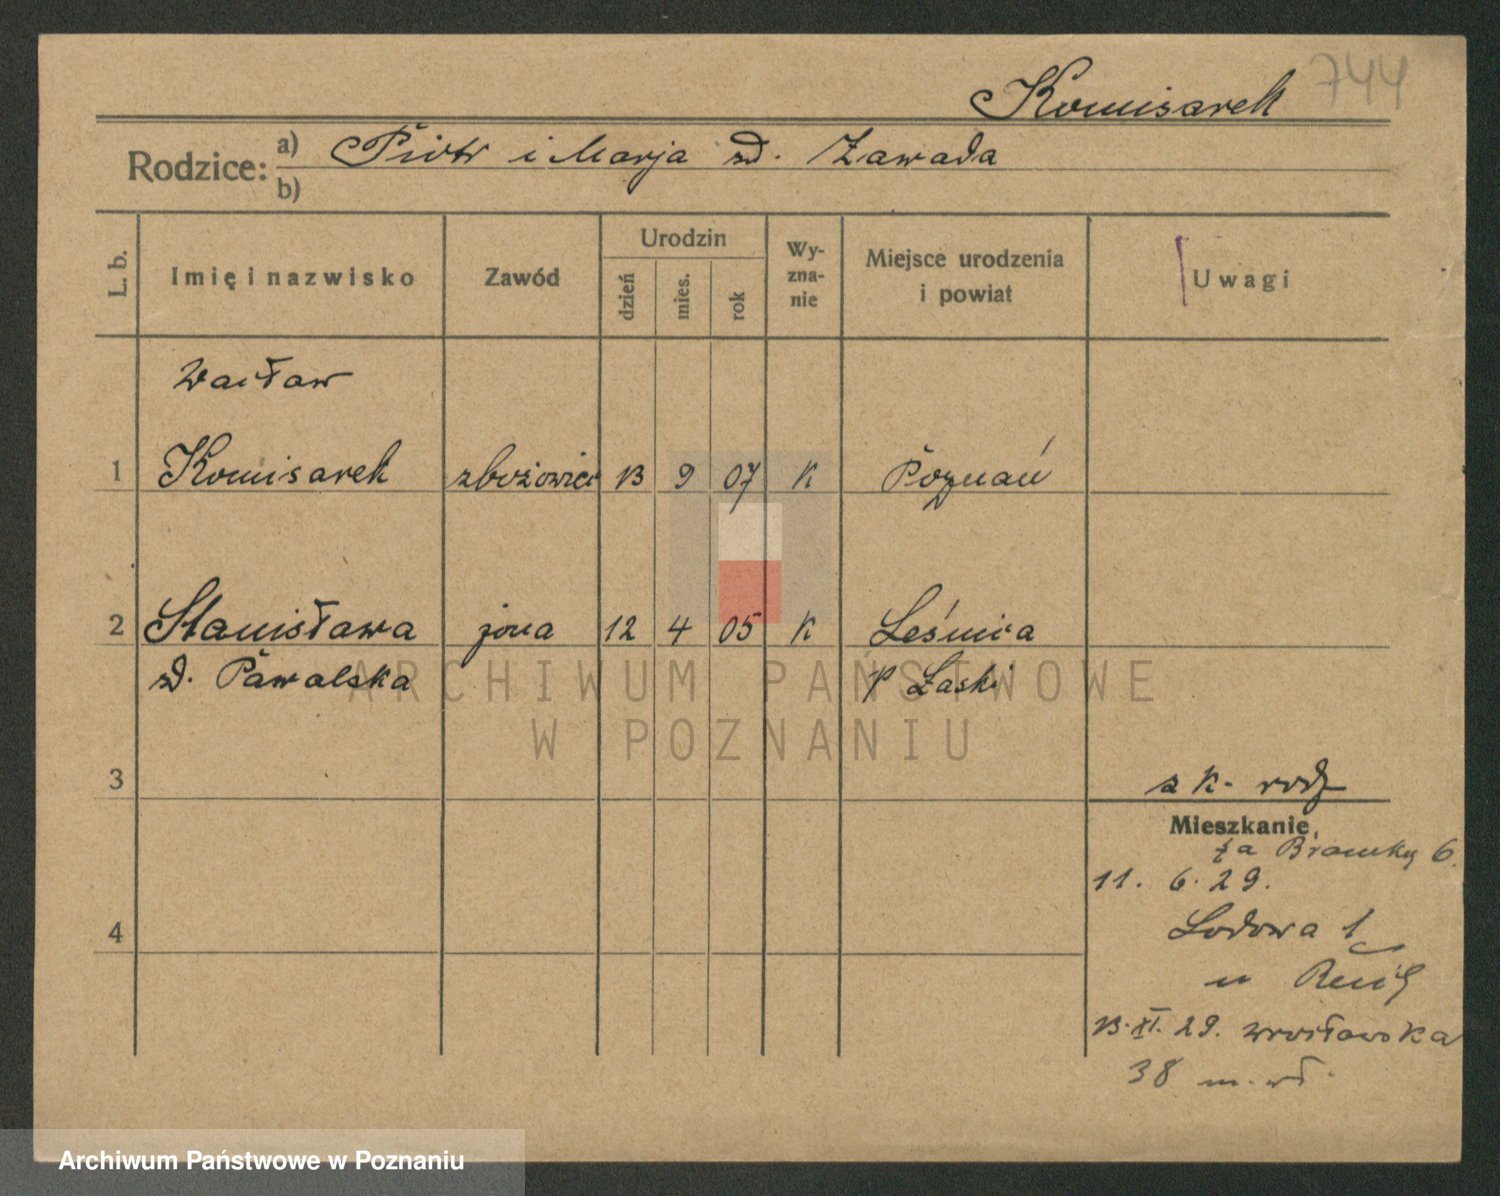 744
Komisarek
Rodzice: a) Piotr i Marja zd. Zawada
b)
L. b.
Imię i nazwisko
Zawód
Urodzin
dzień
mies.
rok
Wy-
zna-
nie
Miejsce urodzenia
i powiat
Uwagi
Wacław
1 Komisarek zbożowiec 13 9 07 K Poznań
2 Stanisława żona 12 4 05 K Leśnica
zd. Pawalska p Łaski
ARCHIWUM PAŃSTWOWE
W POZNANIU
3
z k. rodz
Mieszkanie
za Bramką 6.
11. 6. 29.
4
Lodowa 1
u
13. XI. 29. Wrocławska
38 m. wł.
Archiwum Państwowe w Poznaniu